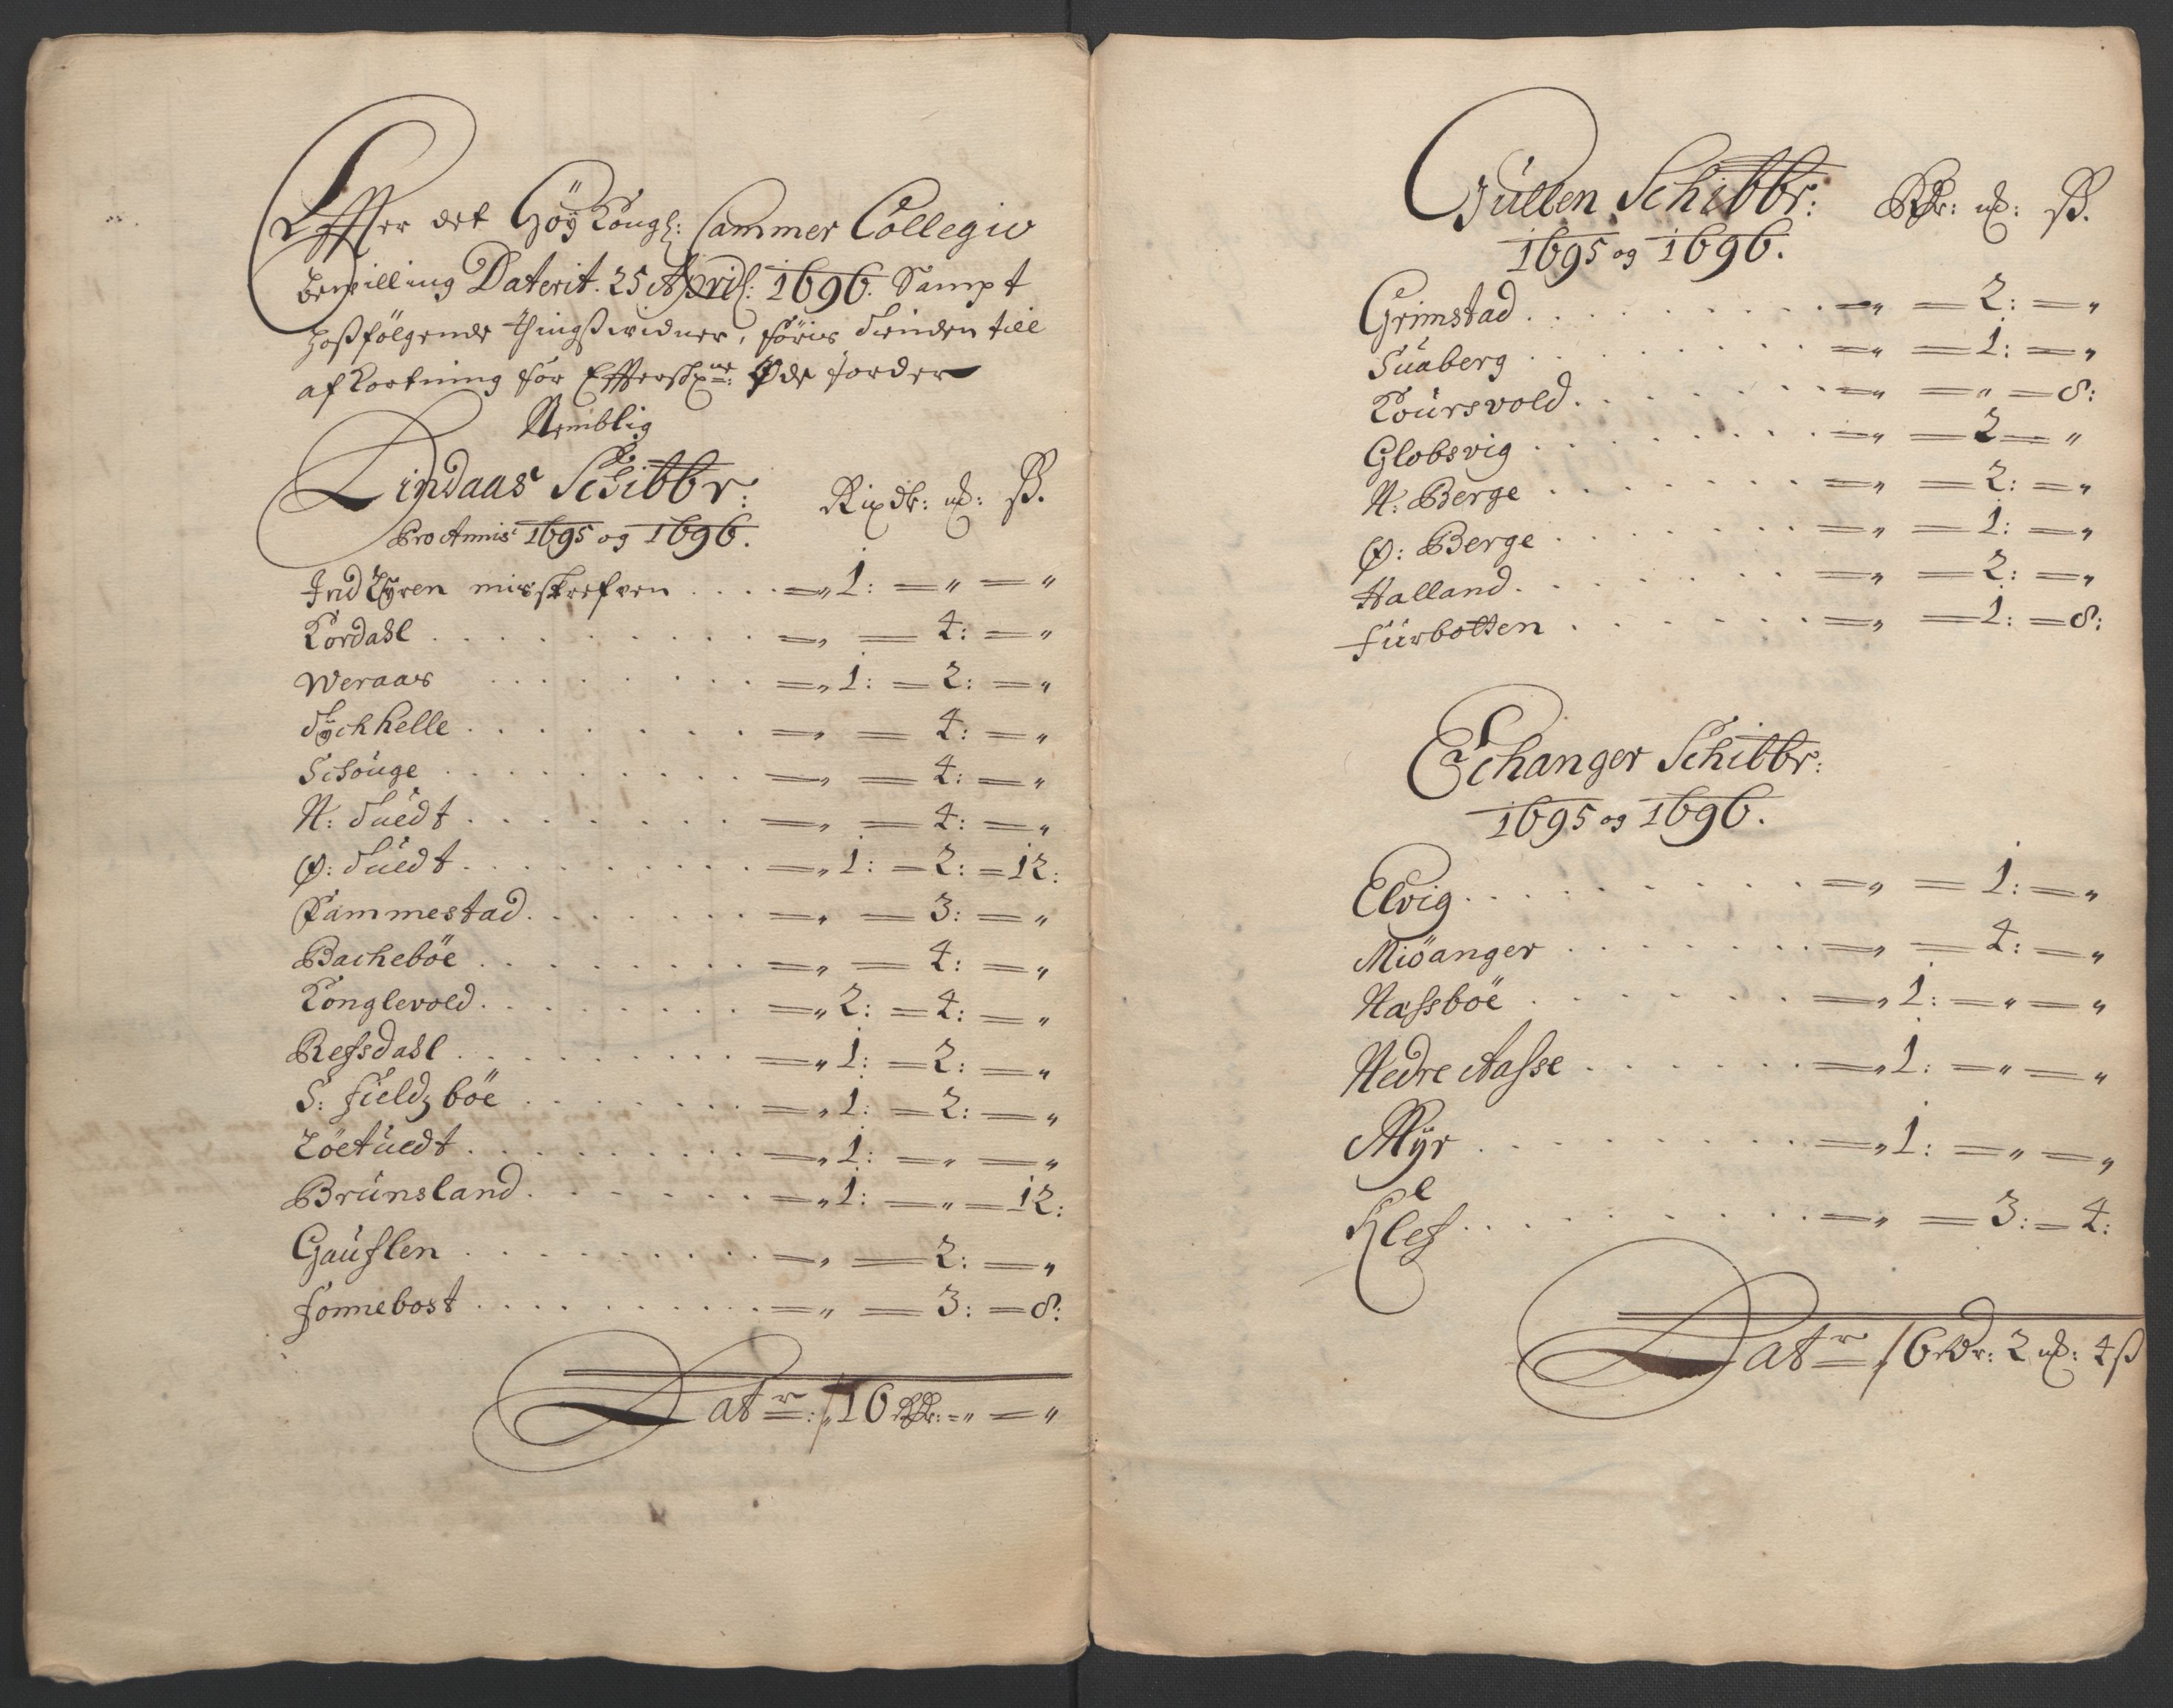 Effter det Höy Kongl: Cammer Collegio
bevilling Daterit. 25 April: 1696. Sampt
hoßfølgende Thingßwidner, føris Tienden till
afkortning for Effterschr:ne Øde Jorder
Nemblig
Lindaas Schibbr: Rixdr: mk: ß.
Pro Annis 1695 og 1696.
Ind Lÿren misskrefven . . . . =„ 1: =„ =„
Kordahl . . . . =„ = 4: =„
Weraas . . . . =„ 1: = 2: =„
Tÿchhelle . . . . =„ = 4: =„
Schouge . . . . =„ = 4: =„
N: Tuedt . . . . =„ = 4: =„
Ø: Tuedt . . . . =„ 1: = 2: = 12:
Kammestad . . . . =„ = 3: =„
Bacheböe . . . . =„ = 4: =„
Konglevold . . . . =„ 2: = 4: =„
Refsdahl . . . . =„ 1: = 2: =„
S: Fieldzböe . . . . =„ 1: = 2: =„
Löetuedt . . . . =„ 1: =„ =„
Brunsland . . . . =„ 1: =„ = 12:
Gauslen . . . . =„ = 2: =„
Fonnebost . . . . =„ = 3: = 8:
Latr: 16 Rdr: =„ =„
Gullen Schibbr: Rdr: mk: ß.
1695 og 1696.
Grimstad . . . . =„ = 2: =„
Suaberg . . . . =„ = 1: =„
Koursvold . . . . =„ =„ = 8:
Globsvig . . . . =„ = 2 =„
N: Berge . . . . =„ = 2: =„
Ø: Berge . . . . =„ = 1: =„
Halland . . . . =„ = 2: =„
Furbotten . . . . =„ = 1: = 8:
Echanger Schibbr:
1695 og 1696.
Elvig . . . . =„ = 1: =„
Miöanger . . . . =„ = 4: =„
Nassböe . . . . =„ 1: =„ =„
Nedre Aasse . . . . =„ 1: =„ =„
Mÿr . . . . =„ 1: =„ =„
Klef . . . . =„ = 3: = 4:
Latr 6 Dr: 2 mk: 4 ß